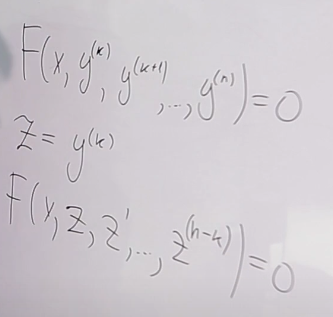 F(x, y^(k), y^(k+1), ..., y^(n)) = 0
z = y^(k)
F(x, z, z', ..., z^(n-k)) = 0